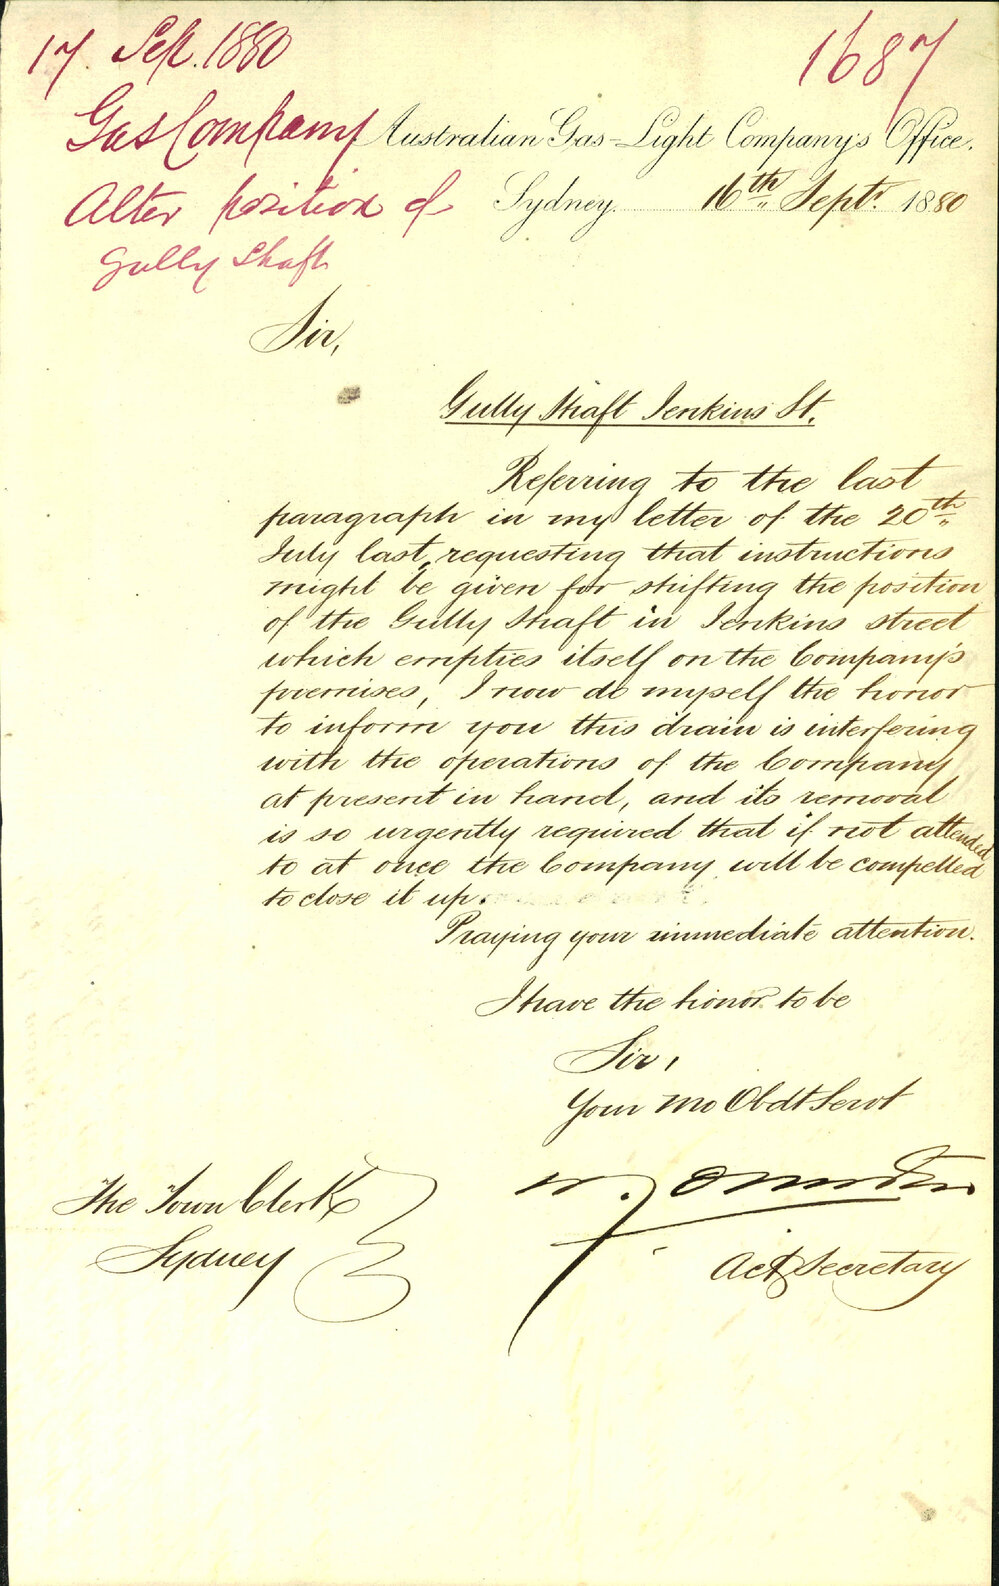 17. Sep. 1880
1687
Gas Company
Australian Gas-Light Company's Office.
Alter position of
Sydney 16th Septr. 1880
Gully Shaft
Sir,
Gully Shaft Jenkins St.
Referring to the last
paragraph in my letter of the 20th
July last, requesting that instructions
might be given for shifting the position
of the Gully Shaft in Jenkins street
which empties itself on the Company's
premises, I now do myself the honor
to inform you this drain is interfering
with the operations of the Company
at present in hand, and its removal
is so urgently required that if not attended
to at once the Company will be compelled
to close it up.
Praying your immediate attention.
I have the honor to be
Sir,
Your Mo Obdt Servt
The Town Clerk
Sydney
Actg Secretary